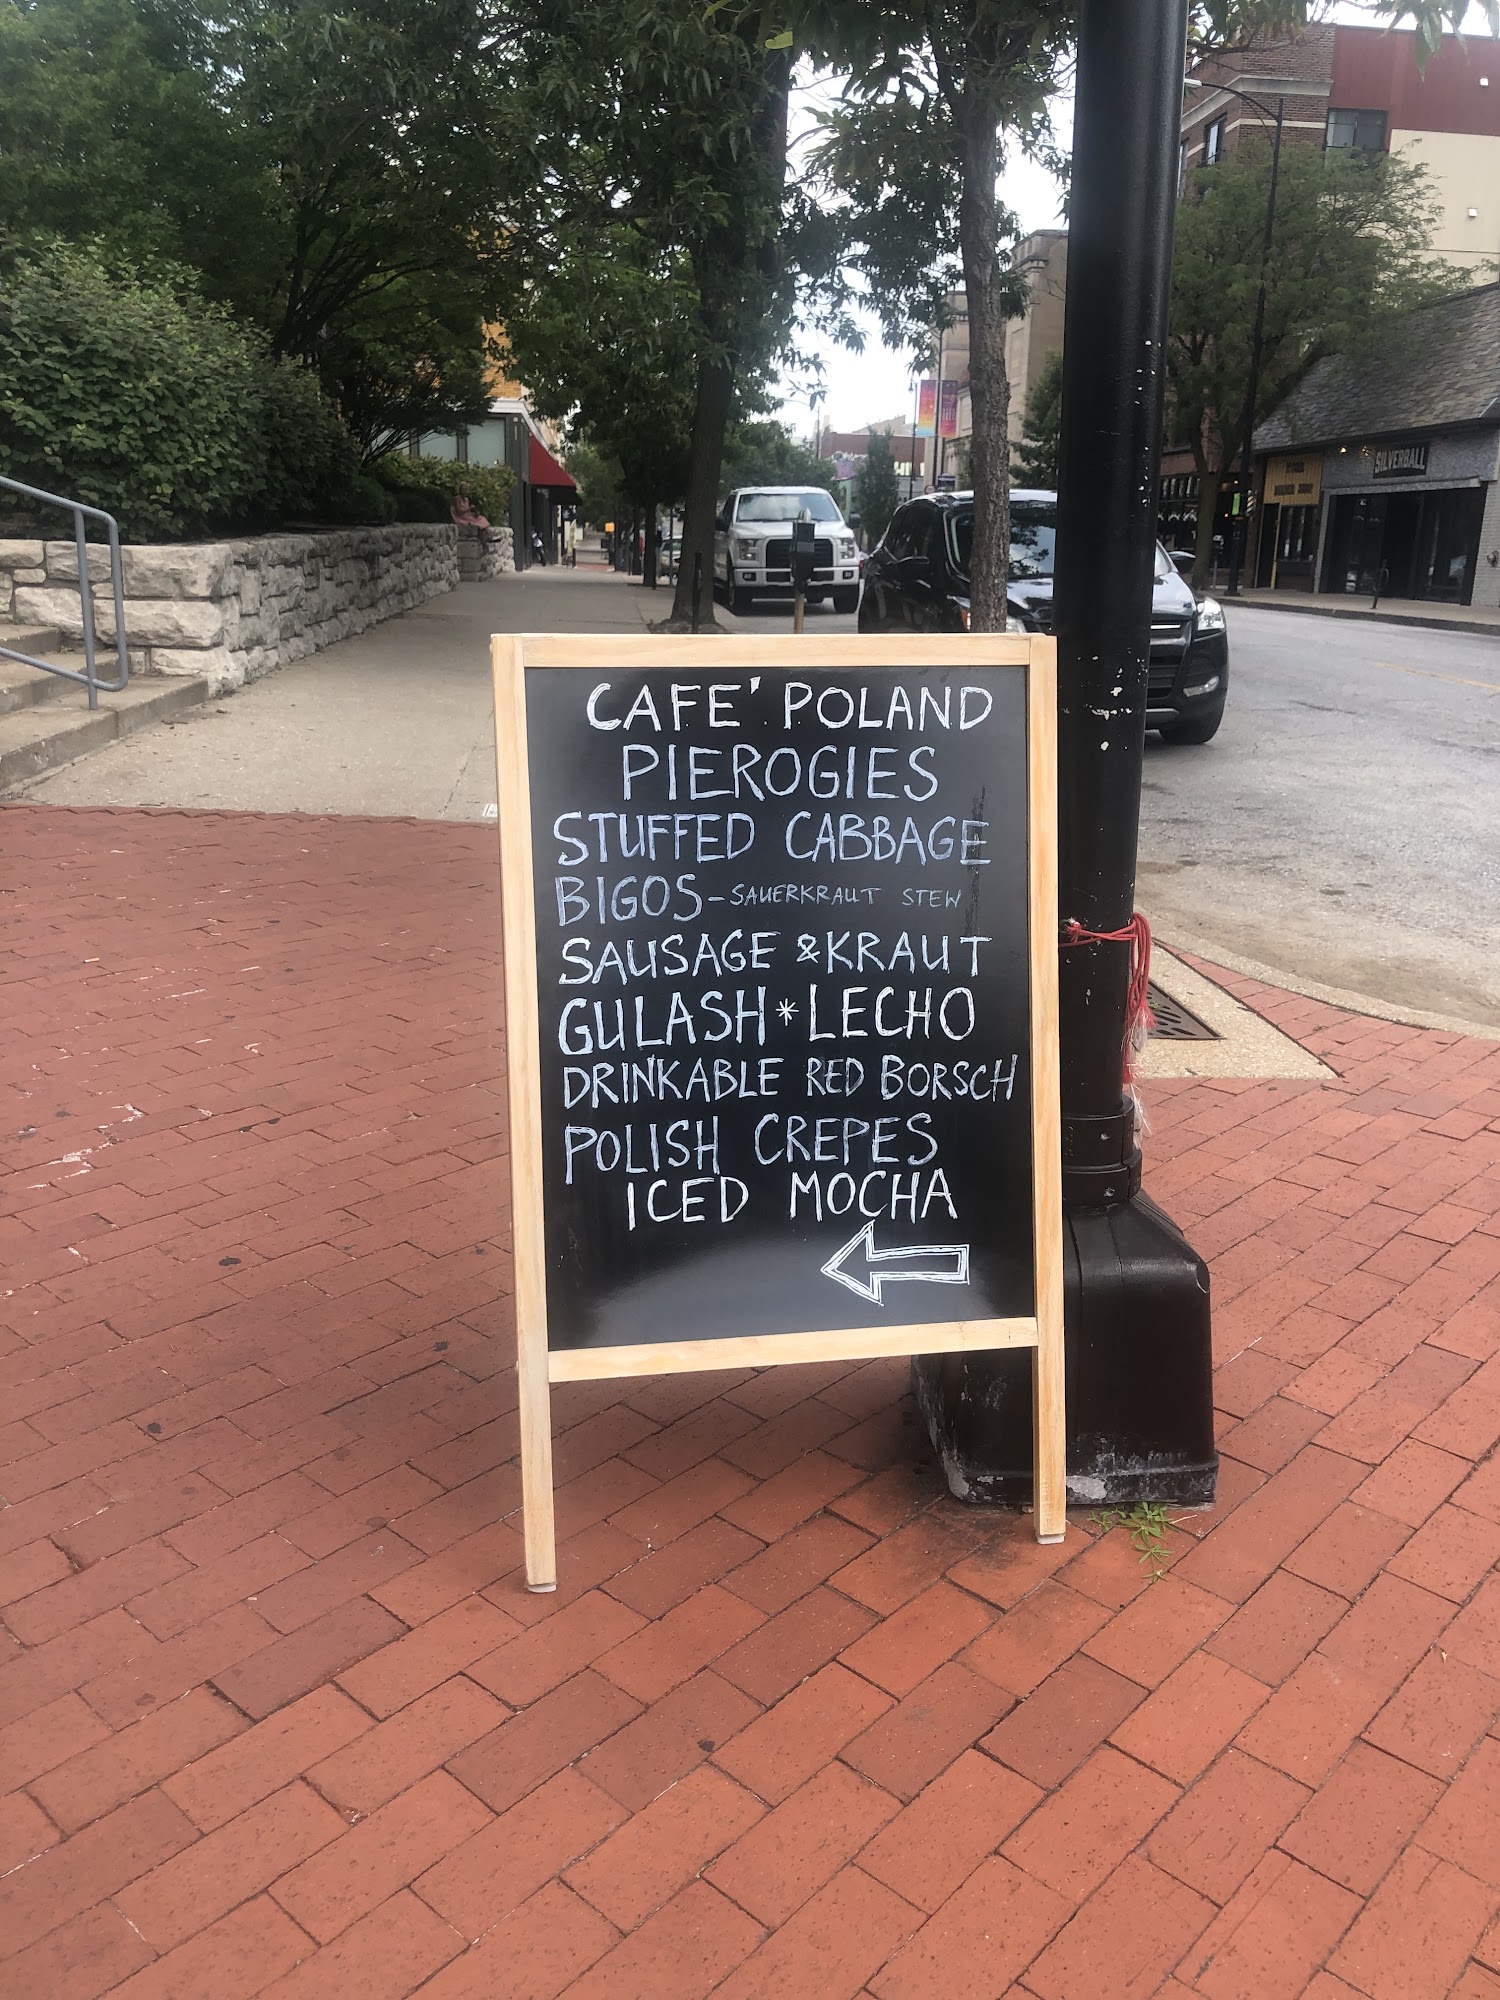 SILVERBALL
CAFE' POLAND
PIEROGIES
STUFFED CABBAGE
BIGOS - SAUERKRAUT STEW
SAUSAGE & KRAUT
GULASH * LECHO
DRINKABLE RED BORSCH
POLISH CREPES
ICED MOCHA